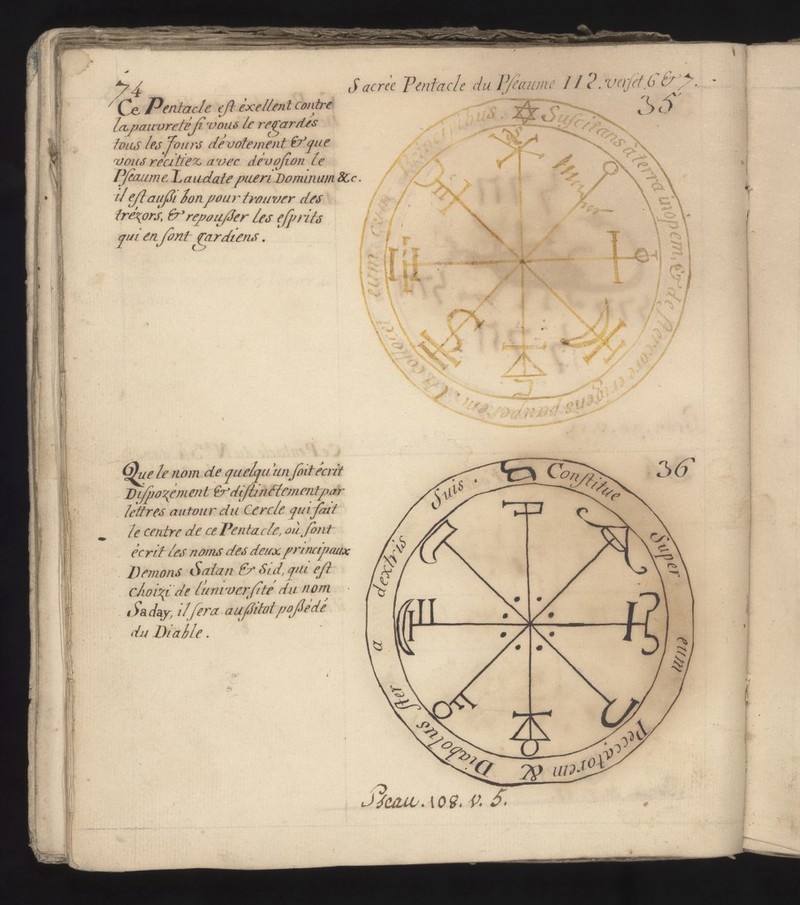 74
Sacrée Pentacle du Pseaume 112. verset 6 & 7.
35
Ce Pentacle est éxellent contre
la pauvreté si vous le regardés
tous les Jours dévotement & que
vous récitiez avec dévosion le
Pseaume Laudate pueri Dominum &c.
il est aussi bon pour trouver des
trézors, & repousser les esprits
qui en sont gardiens.
Suscitans à terra inopem, & de stercore erigens pauperem. ut collocet eum cum Principibus.
36
Que le nom de quelqu'un soit écrit
Dispozément & distinctement par
lettres autour du Cercle qui fait
le centre de ce Pentacle, où sont
écrit les noms des deux principaux
Démons Satan & Sid, qui est
choizi de l'université du nom
Saday, il sera aussitot possédé
du Diable.
Constitue Super eum Peccatorem & Diabolus ster a dextris Suis.
Pseau. 108. v. 5.